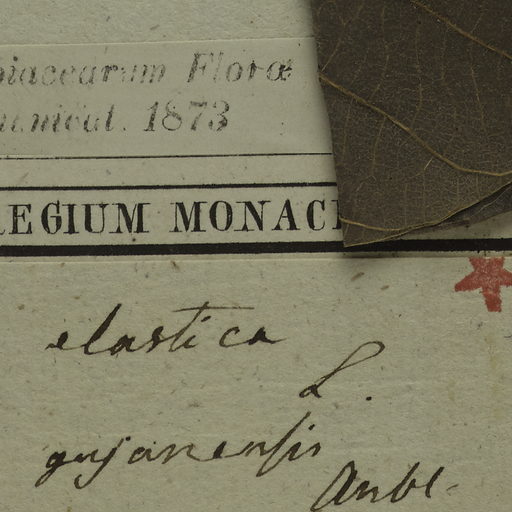 piacearum Floræ
1873
REGIUM MONAC
elastica
L.
gujanensis
Aubl.